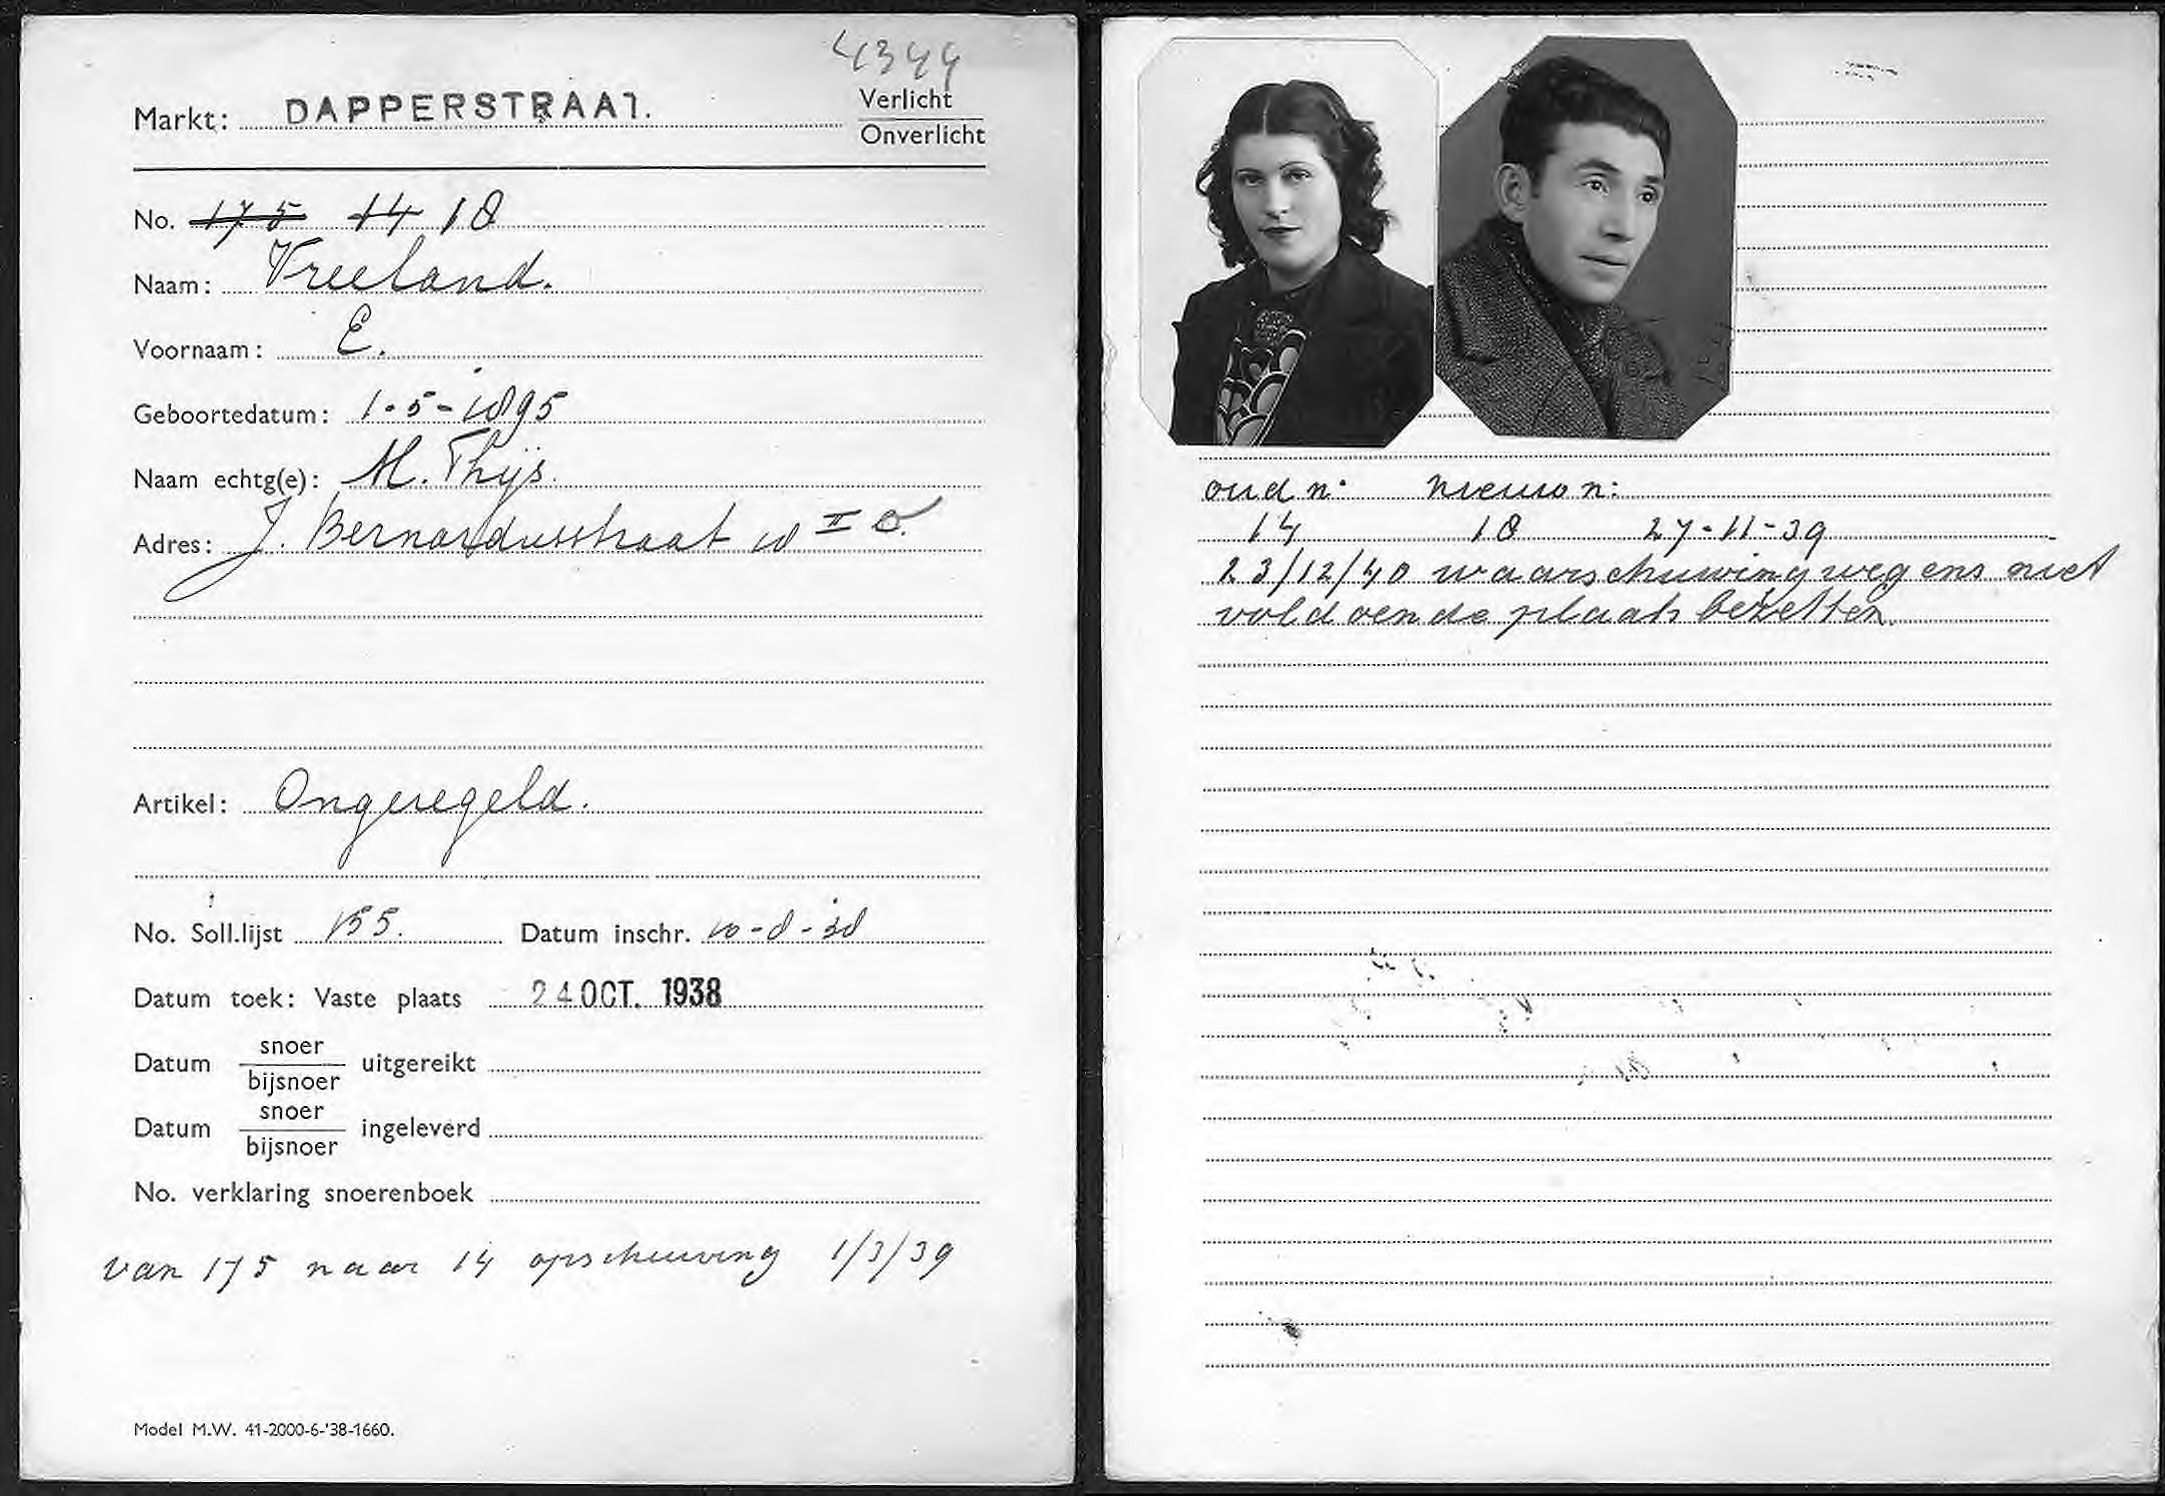 4344
Markt: DAPPERSTRAAT.
Verlicht
Onverlicht
No. 175 14 18
Naam: Vreeland.
Voornaam: E.
Geboortedatum: 1-5-1895
Naam echtg(e): M. Thijs.
Adres: J. Bernardusstraat 10 II
Artikel: Ongeregeld.
No. Soll.lijst 155. Datum inschr. 10-8-38
Datum toek: Vaste plaats 24 OCT. 1938
Datum snoer uitgereikt
bijsnoer
Datum snoer ingeleverd
bijsnoer
No. verklaring snoerenboek
van 175 naar 14 opschuiving 1/3/39
Model M.W. 41-2000-6-'38-1660.
oud n: nieuw n:
14 18 27-11-39
23/12/40 waarschuwing wegens niet
voldoende plaats bezetten.